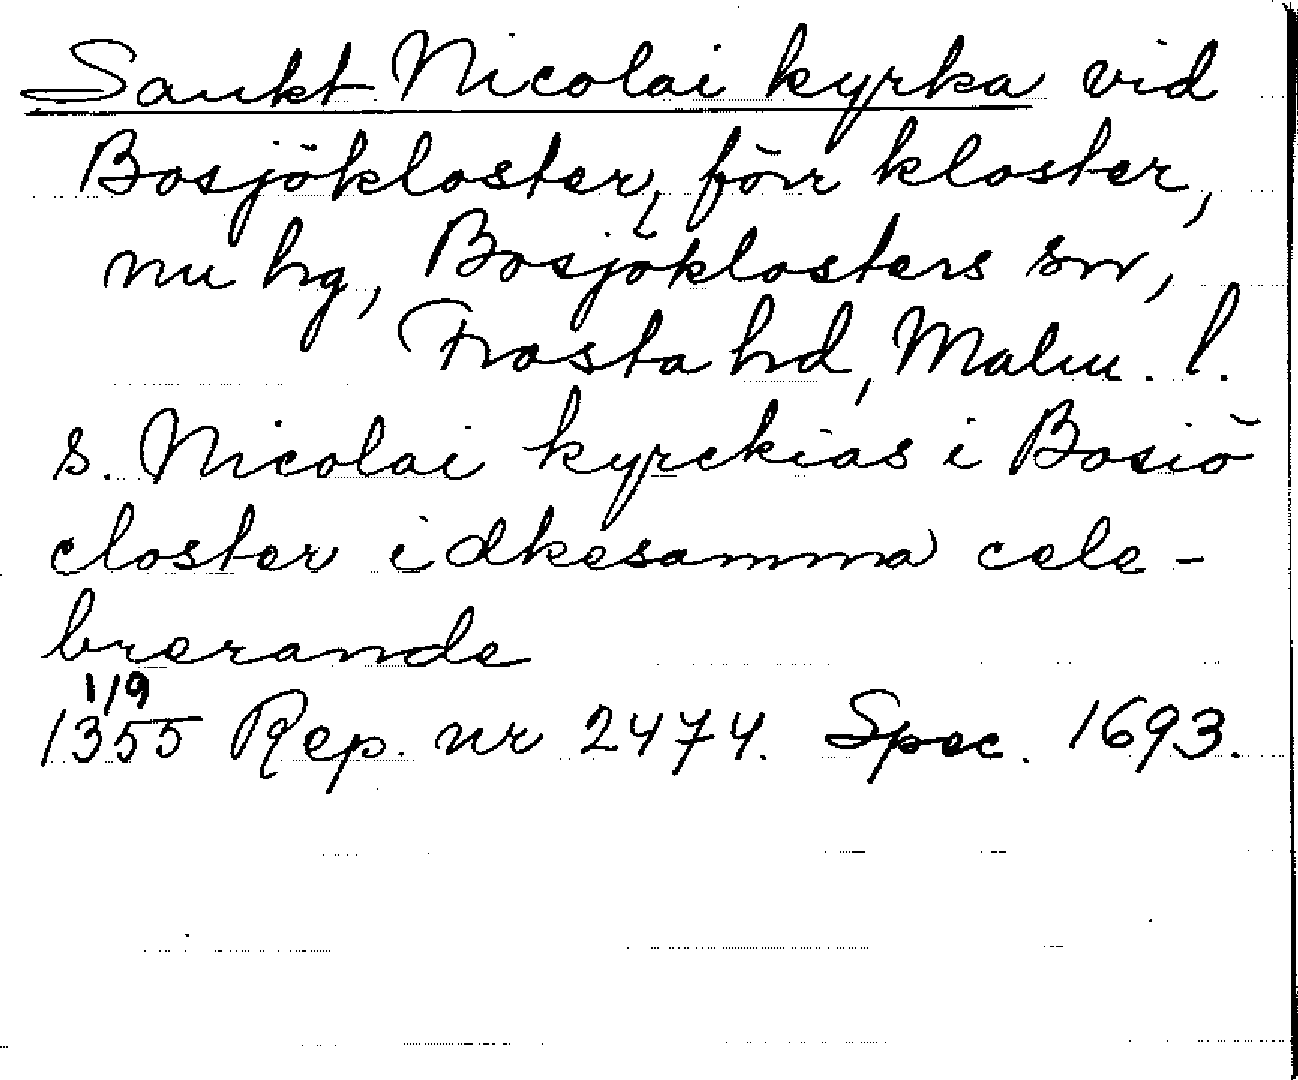 Sankt Nicolai kyrka vid
Bosjökloster, förr kloster,
nu hg, Bosjöklosters sn,
Frosta hd, Malm. l.
S. Nicolai kyrckias i Bosiö
closter idkesamma cele-
brerande
1/9
1355 Rep. nr 2474. Spec. 1693.